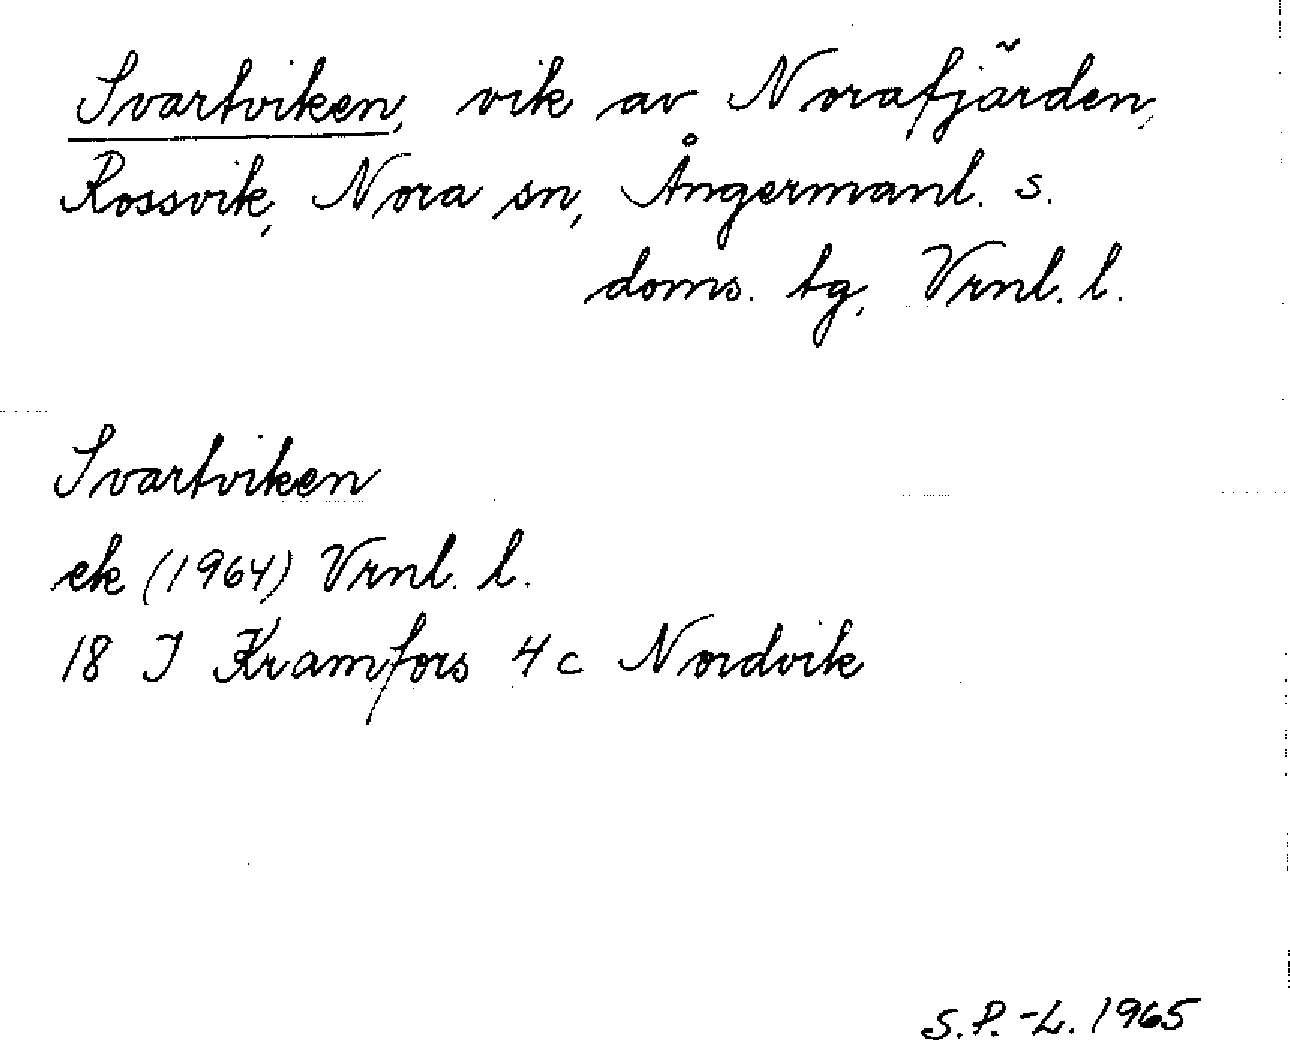 Svartviken, vik av Norafjärden,
Rossvik, Nora sn, Ångermanl. s.
doms. tg, Vrnl. l.
Svartviken
ek (1964) Vrnl. l.
18 I Kramfors 4c Nordvik
S.P.-L. 1965